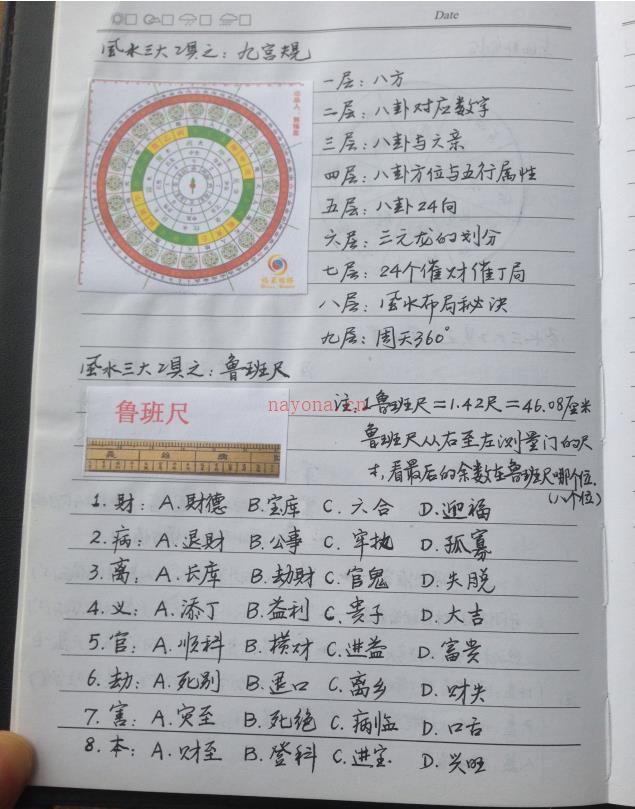 Date
风水三大工具之：九宫规
一层：八方
二层：八卦对应数字
三层：八卦与六亲
四层：八卦方位与五行属性
五层：八卦24向
六层：三元龙的划分
七层：24个催财催丁局
八层：风水布局秘决
九层：周天360°
风水三大工具之：鲁班尺
鲁班尺
nayona.cn
注：1鲁班尺=1.42尺=46.08厘米
鲁班尺从右至左测量门的尺
寸，看最后的余数在鲁班尺哪个位.
(八个位)
1. 财：A.财德 B.宝库 C.六合 D.迎福
2. 病：A.退财 B.公事 C.牢执 D.孤寡
3. 离：A.长库 B.劫财 C.官鬼 D.失脱
4. 义：A.添丁 B.益利 C.贵子 D.大吉
5. 官：A.顺科 B.横财 C.进益 D.富贵
6. 劫：A.死别 B.退口 C.离乡 D.财失
7. 害：A.灾至 B.死绝 C.病临 D.口舌
8. 本：A.财至 B.登科 C.进宝 D.兴旺